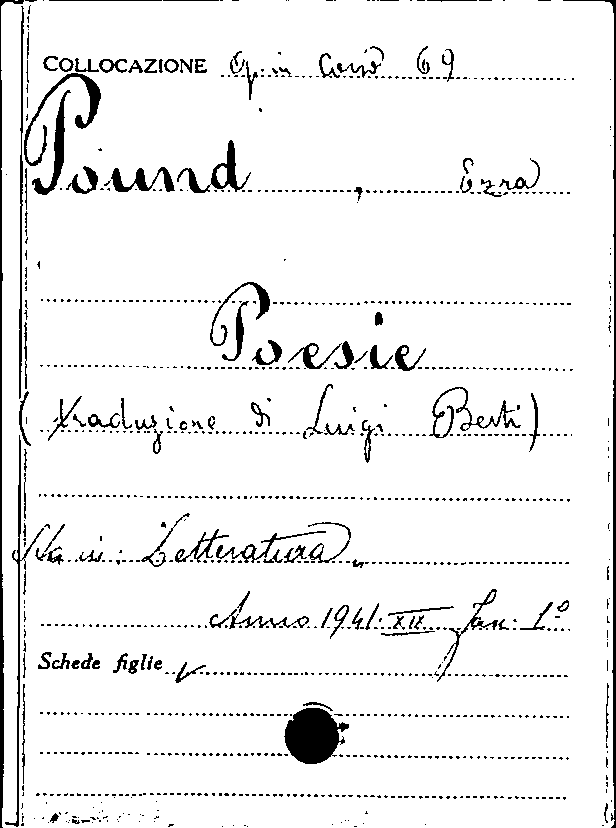 COLLOCAZIONE Op. in Corso 69
Pound , Ezra
Poesie
( traduzione di Luigi Berti )
Sta in: Letteratura „
Anno 1941. XIX Fasc. 1º
Schede figlie